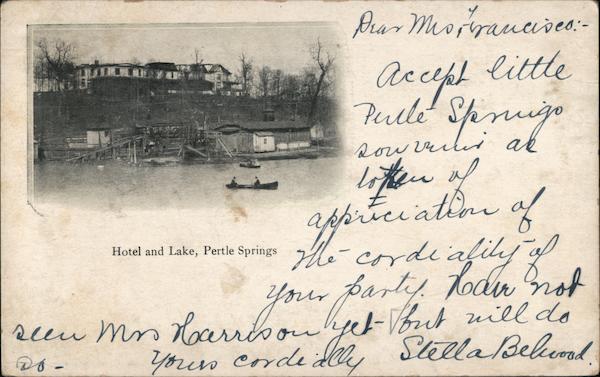 Dear Mrs Francisco:-
Accept little
Pertle Springs
souvenir as
token of
appriciation of
the cordiality of
your party. Have not
seen Mrs Harrison yet - but will do
so -
Yours cordially Stella Belwood.
Hotel and Lake, Pertle Springs